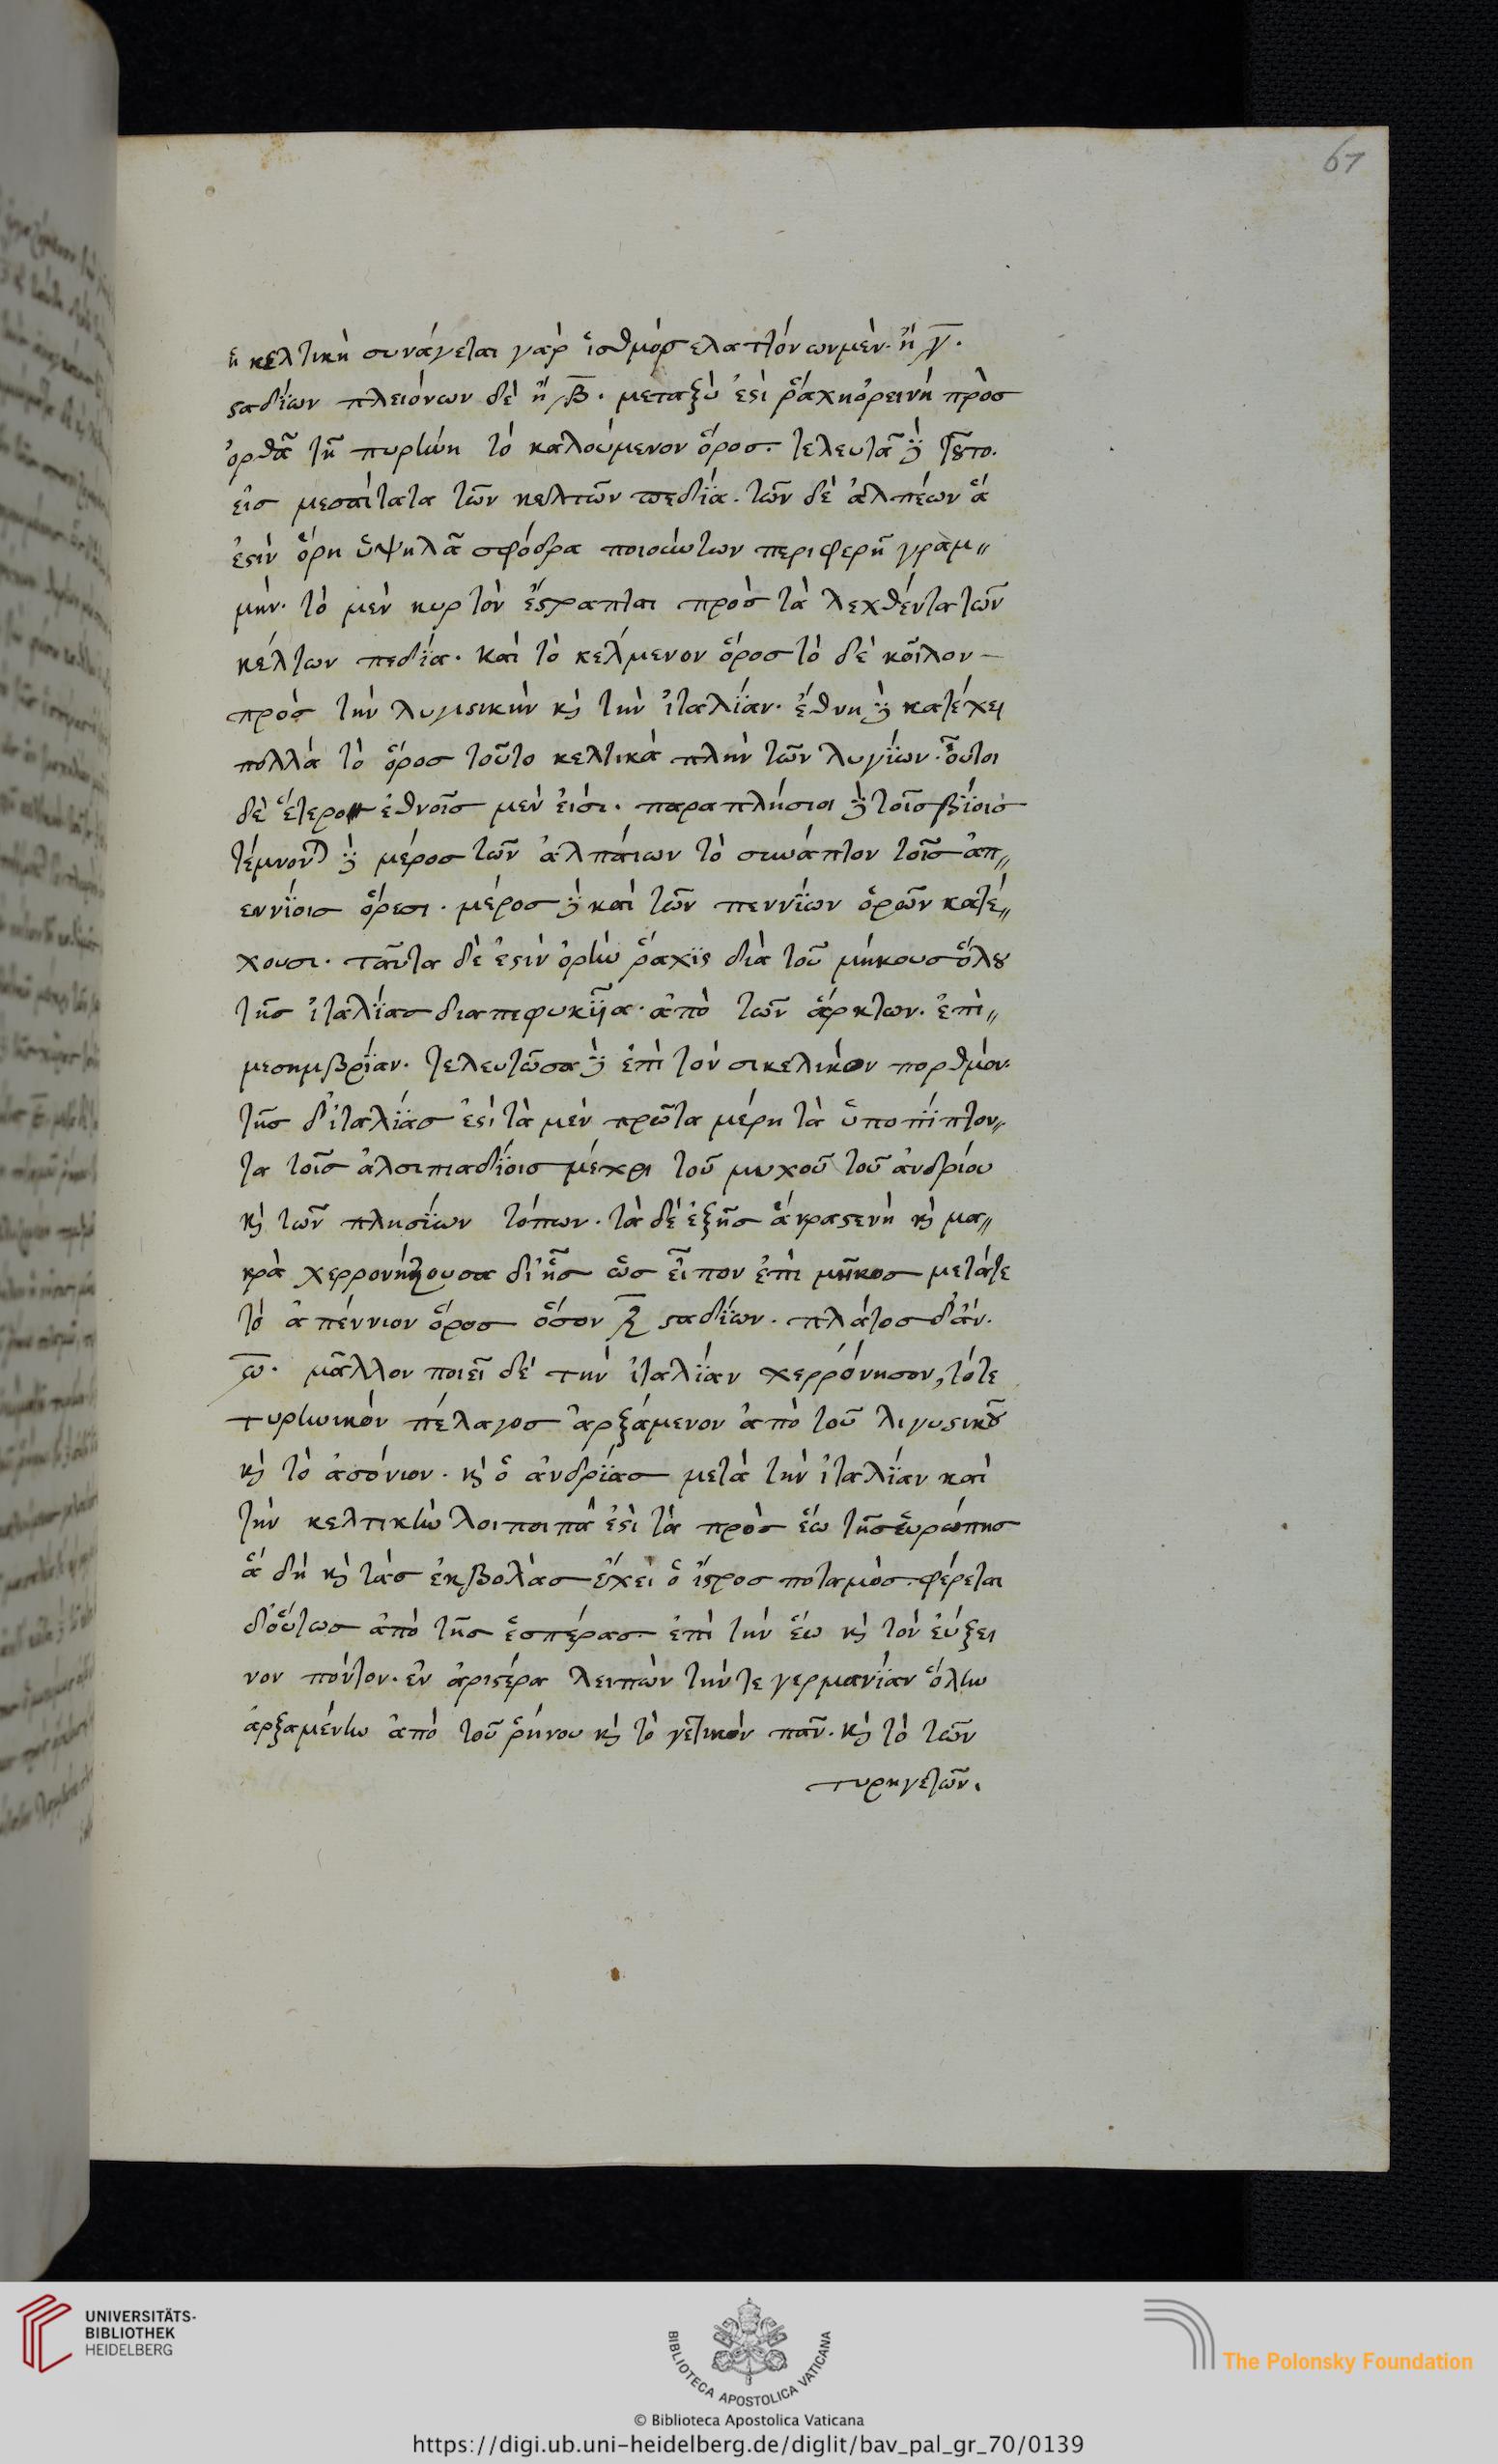 67
ἡ κελτικὴ συνάγεται γὰρ ἰσθμὸς ελαττόνων μὲν. ἢ ͵γ.
ϛαδίων πλειόνων δὲ ἢ ͵β. μεταξὺ ἐϛὶ ῥάχη ὀρεινὴ πρὸσ
ὀρθᾶ τῆ πυρήνη τὸ καλούμενον ὄροσ. τελευτᾶ δὲ τοῦτο.
εἰσ μεσαίτατα τῶν κελτῶν πεδία. τῶν δὲ ἀλπέων ἅ
ἐϛὶν ὄρη ὑψηλᾶ σφόδρα ποιούντων περιφερῆ γραμ〃
μήν. τὸ μὲν κυρτὸν ἔϛραπται πρὸσ τὰ λεχθέντα τῶν
κέλτων πεδία. καὶ τὸ κελμενον ὄροσ τὸ δὲ κοῖλον –
πρὸσ τὴν λυγιϛικὴν κὶ τὴν ἰταλίαν. ἔθνη δὲ κατέχει
πολλὰ τὸ ὄροσ τοῦτο κελτικὰ πλὴν τῶν λυγίων. οὗτοι
δὲ ἑτερο εθνοῖσ μὲν εἰσι. παραπλήσιοι δὲ τοῖσ βίοισ
μέροσ τῶν ἀλπαίων τὸ συνάπτον τοῖσ ἀπ〃
εννίοισ ὄρεσι. μέροσ δὲ καὶ τῶν πεννίων ὀρῶν κατέ〃
χουσι. ταῦτα δὲ ἐϛὶν ὀρινὴ ῥάχϊϛ διὰ τοῦ μήκουσ ὅλου
τῆσ ἰταλίασ διαπεφυκῖα. ἀπὸ τῶν ἄρκτων. ἐπὶ〃
μεσημβρίαν. τελευτῶσα δὲ ἐπὶ τὸν σικελικὸν πορθμόν.
τῆσ δ᾽ἰταλίασ ἐϛὶ τὰ μὲν πρῶτα μέρη τὰ ὑποπίπτον〃
τα τοῖσ ἀλσιπιαδίοισ μέχρι τοῦ μυχοῦ τοῦ ἀνδρίου
κὶ τῶν πλησίων τόπων. τὰ δὲ ἑξῆσ ἄκραϛενὴ κὶ μα〃
κρὰ χερρονήζουσα δι᾽ ἧσ ὡσ εἶπον ἐπὶ μῆκοσ μετάτε
τὸ ἀπέννιον ὄροσ ὅσον ͵ζ ϛαδίων. πλάτοσ δ᾽ἀν.
ω. μᾶλλον ποιεῖ δὲ τὴν ἰταλίαν χερρόνησον, τότε
τυρηνικὸν πέλαγοσ ἀρξάμενον ἀπὸ τοῦ λιγυϛικοῦ
κὶ τὸ ἀσόνιον. κὶ ὁ ἀνδρίασ μετὰ τὴν ἰταλίαν καὶ
τὴν κελτικὴν λοιποιπὰ ἐϛὶ τὰ πρὸσ ἕω τῆσ εὐρώπησ
ἃ δὴ κὶ τὰσ ἐκβολὰσ ἔχει ὁ ἴϛροσ ποταμὸσ. φέρεται
δ᾽οὕτωσ ἀπὸ τῆσ ἑσπέρασ ἐπὶ τὴν ἕω κὶ τὸν εὔξει
νον πόντον. ἐν ἀριϛέρα λειπὼν τὴν τε γερμανίαν ὅλην
ἀρξαμένην ἀπὸ τοῦ ῥήνου κὶ τὸ γετικὸν πᾶν. κὶ τὸ τῶν
τυρηγετῶν.
UNIVERSITÄTS-
BIBLIOTHEK
HEIDELBERG
BIBLIOTECA APOSTOLICA VATICANA
The Polonsky Foundation
© Biblioteca Apostolica Vaticana
https://digi.ub.uni-heidelberg.de/diglit/bav_pal_gr_70/0139